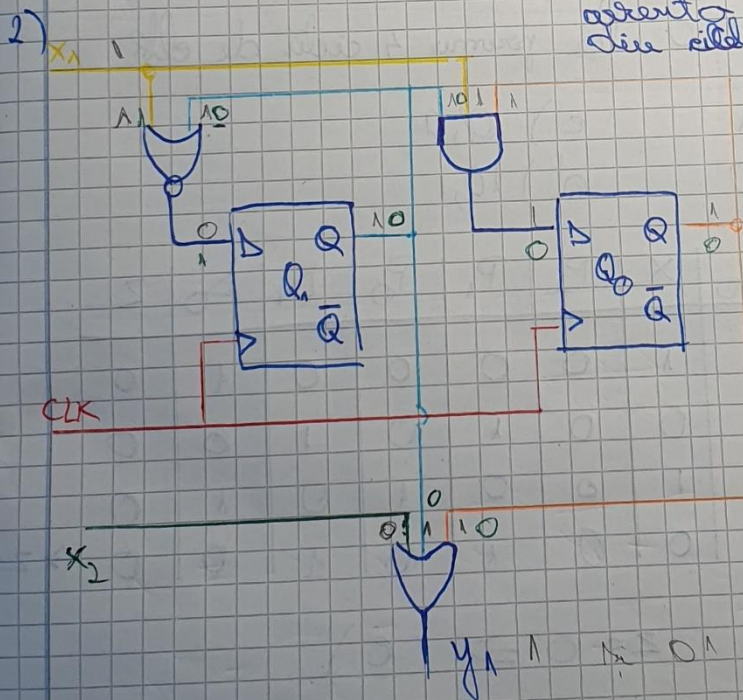 2)
X1 1
1 1 1 0
1 0 1 1
0
1
D Q
Q1
Q̄
1 0
1
0
D Q
Q0
Q̄
1
0
CLK
0
X2
0 1 1 1 0
y1 1 0 1